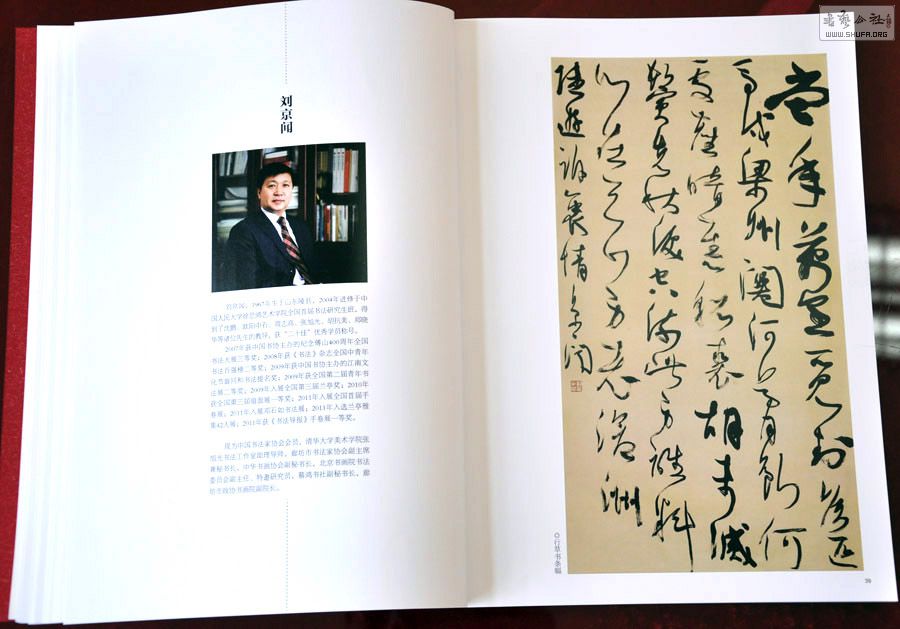 书艺公社
WWW.SHUFA.ORG
刘京闻
刘京闻，1967年生于山东陵县，2004年进修于中
国人民大学徐悲鸿艺术学院全国首届书法研究生班。得
到了沈鹏、欧阳中石、张旭光、胡抗美、
华等诸位先生的教导，获“二十佳”优秀学员称号。
2007年获中国书协主办的纪念傅山400周年全国
书法大展三等奖；2008年获《书法》杂志全国中青年
书法百强榜二等奖；2009年获中国书协主办的江南文
化节翁同和书法提名奖；2009年获全国第二届青年书
法展二等奖；2009年入展全国第三届兰亭奖；2010年
获全国第三届扇面展一等奖；2011年入展全国首届手
卷展；2011年入展邓石如书法展；2011年入选兰亭雅
集42人展；2011年获《书法导报》手卷展一等奖。
现为中国书法家协会会员，清华大学美术学院张
旭光书法工作室助理导师，廊坊市书法家协会副主席
兼秘书长，中华书画协会副秘书长，北京书画院书法
委员会副主任、特邀研究员，副秘书长，廊
坊市政协书画院副院长。
当年万里觅封侯匹
马戍梁州关河梦断何
处尘暗旧貂裘胡未灭
鬓先秋泪空流此身谁料
心在天山身老沧洲
陆游诉衷情京闻
◎行草书条幅
39